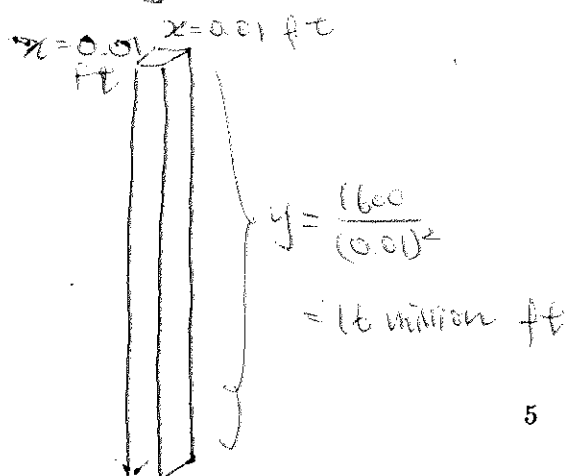 x = 0.01 ft
x = 0.01 ft
y = 1600 / (0.01)²
= 16 million ft
5